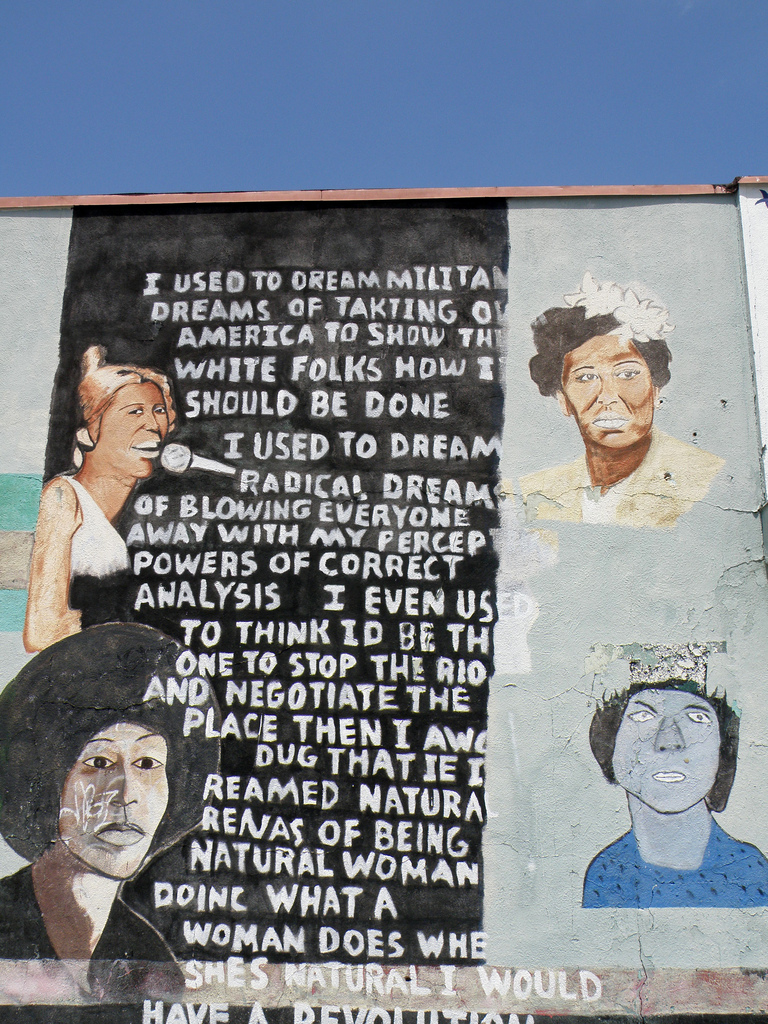 I USED TO DREAM MILITAN
DREAMS OF TAKTING OV
AMERICA TO SHOW THE
WHITE FOLKS HOW I
SHOULD BE DONE
I USED TO DREAM
RADICAL DREAMS
OF BLOWING EVERYONE
AWAY WITH MY PERCEP
POWERS OF CORRECT
ANALYSIS I EVEN USED
TO THINK ID BE TH
ONE TO STOP THE RIO
AND NEGOTIATE THE
PLACE THEN I AWO
DUG THAT IE I
REAMED NATURA
RENAS OF BEING
NATURAL WOMAN
DOINC WHAT A
WOMAN DOES WHE
SHES NATURAL I WOULD
HAVE A REVOLUTION